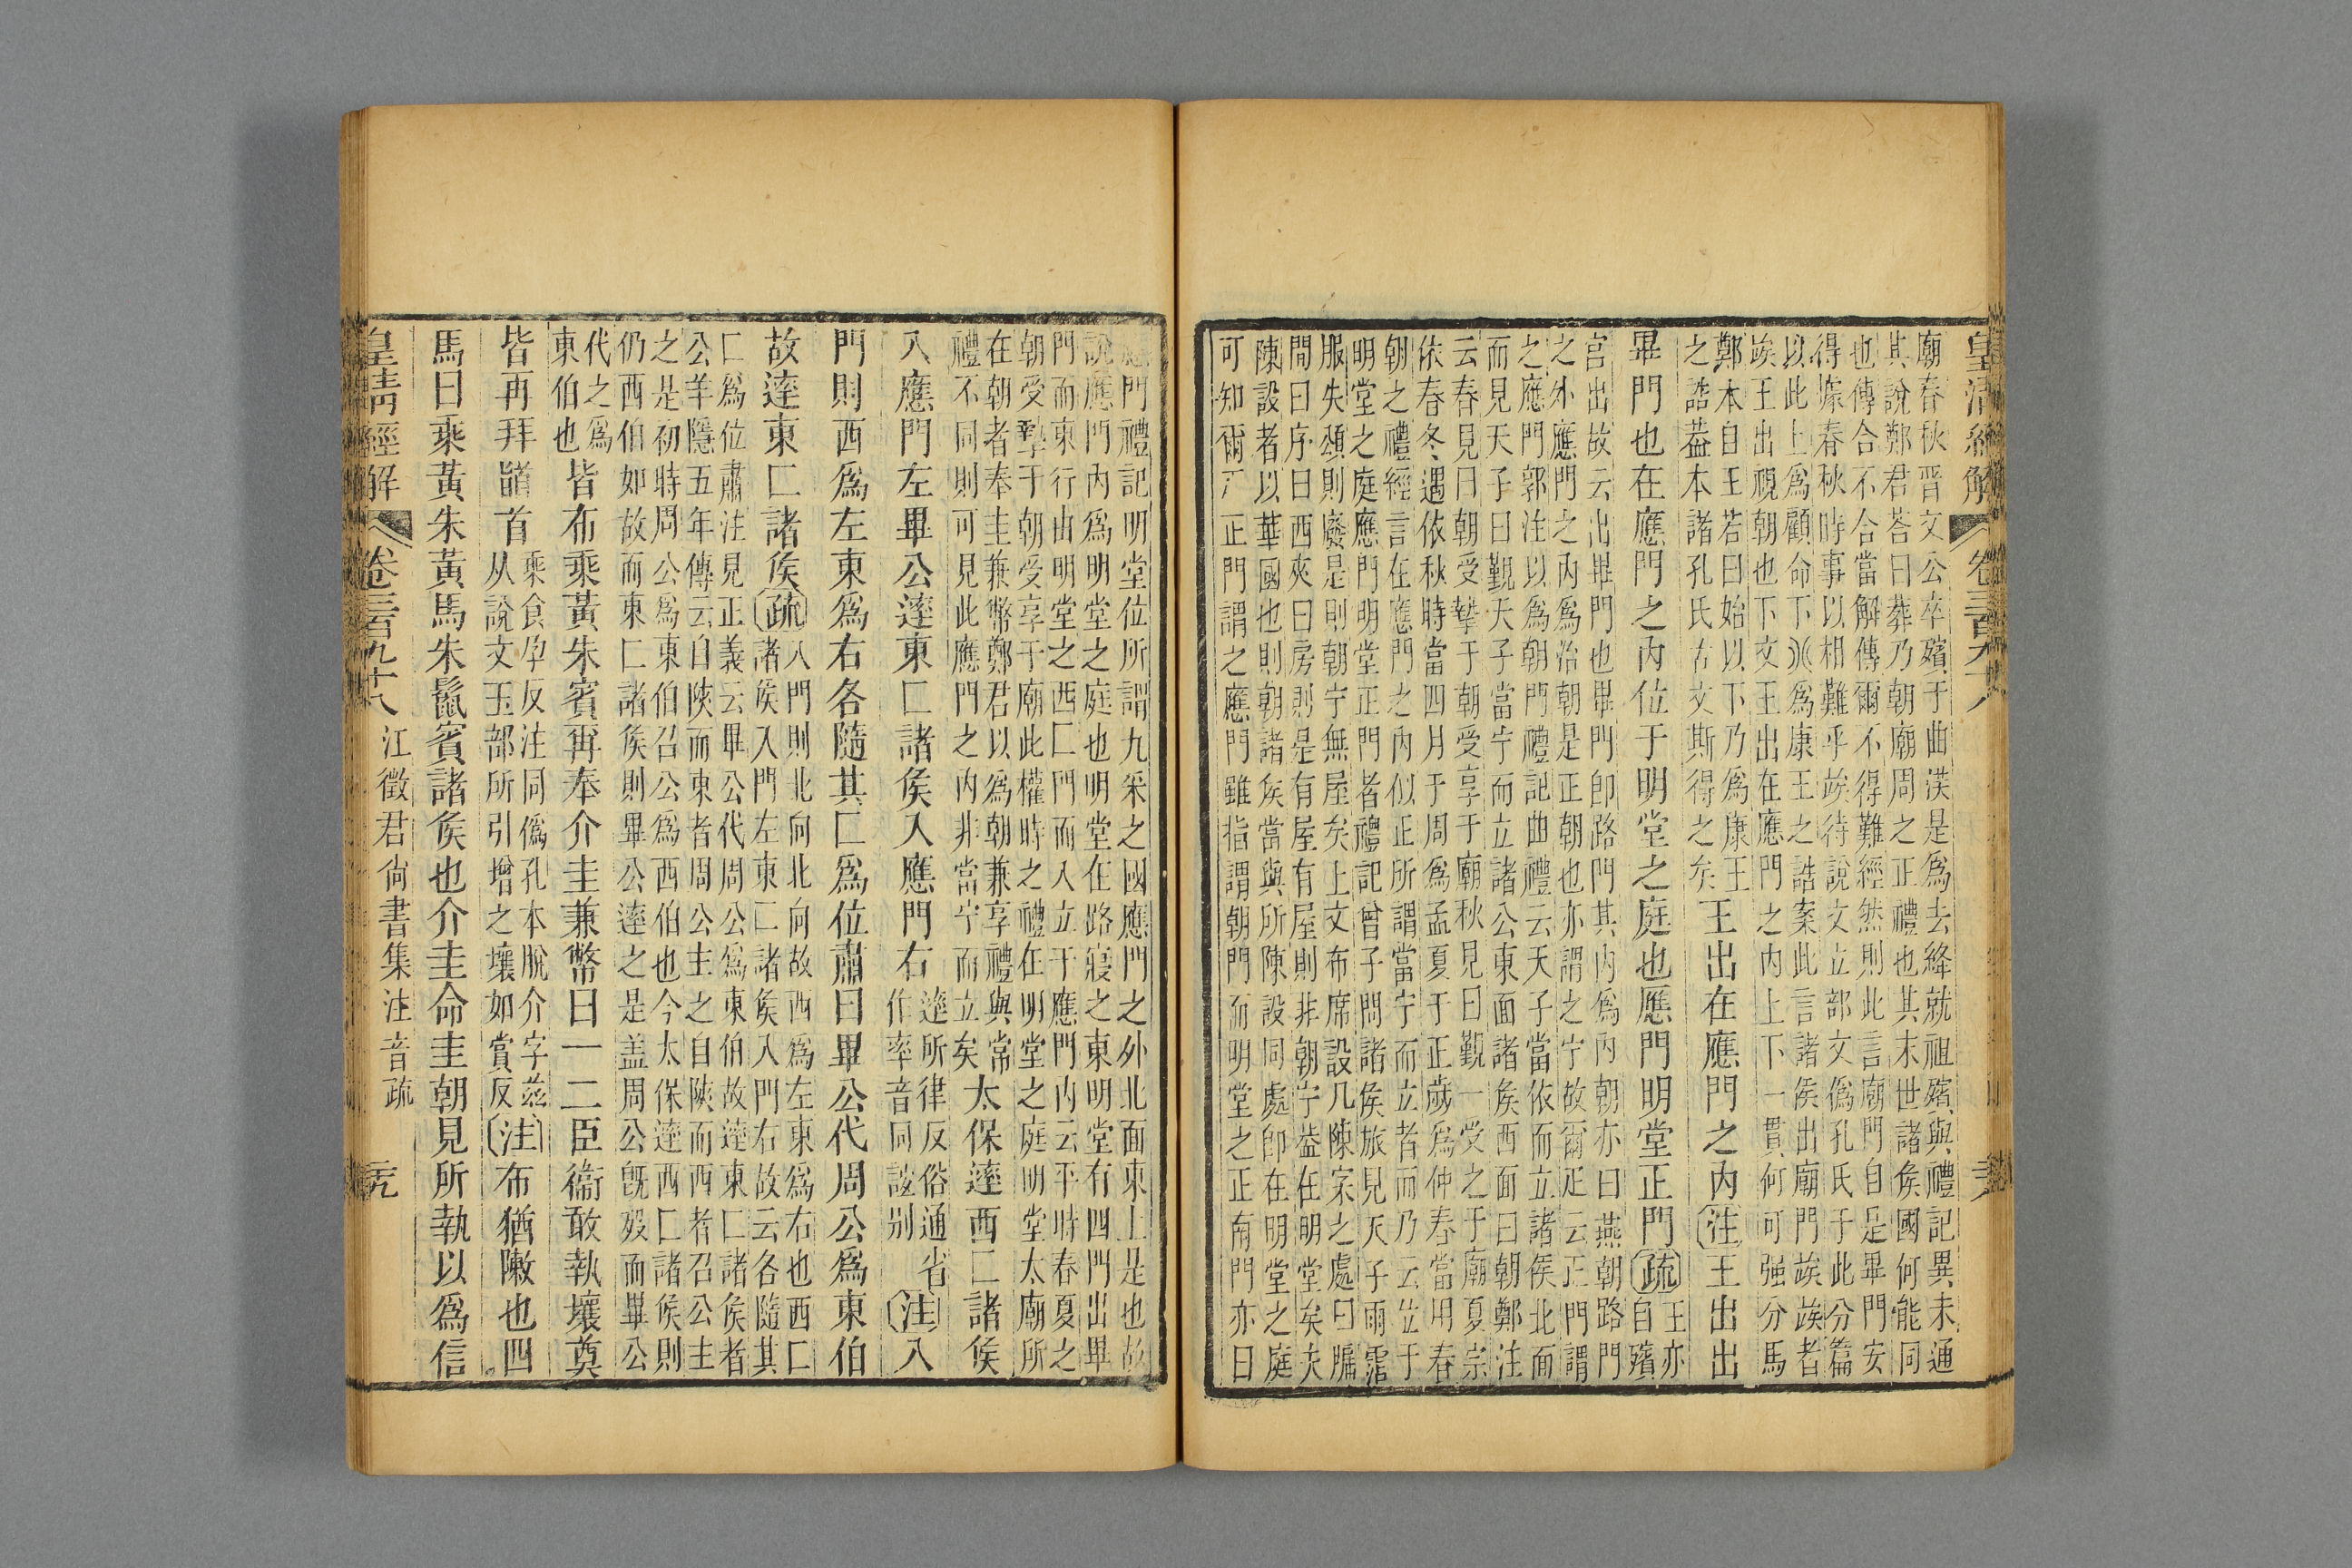 皇淸經解
卷三百九十八
廟春秋晋文公卒殯于曲沃是爲去絳就祖殯與禮記異未通
其說鄭君荅曰葬乃朝廟周之正禮也其末世諸矦國何能同
也傳合不合當解傳爾不得難經然則此言廟門自是畢門安
得據春秋時事以相難乎竢待說文立部文僞孔氏于此分篇
以此上爲顧命下㕕爲康王之誥案此言諸矦出廟門竢竢者
竢王出視朝也下文王出在應門之内上下一貫何可强分馬
鄭本自王若曰始以下乃爲康王
之誥葢本諸孔氏古文斯得之矣
王出在應門之內注王出出
畢門也在應門之內位于明堂之庭也應門明堂正門疏
王亦
自殯
宮出故云出畢門也畢門卽路門其內爲內朝亦曰燕朝路門
之外應門之內爲治朝是正朝也亦謂之宁故爾疋云正門謂
之應門郭注以爲朝門禮記曲禮云天子當依而立諸矦北面
而見天子曰覲天子當宁而立諸公東面諸矦西面曰朝鄭注
云春見曰朝受摯于朝受享于廟秋見曰覲一受之于廟夏宗
依春冬遇依秋時當四月于周爲孟夏于正歲爲仲春當用春
朝之禮經言在應門之內似正所謂當宁而立者而乃云位于
明堂之庭應門明堂正門者禮記曾子問諸矦旅見天子雨霑
服失頌則廢是則朝宁無屋矣上文布席設几陳宗之處曰牖
閒曰序曰西夾曰房則是有屋有屋則非朝宁葢在明堂矣夫
陳設者以華國也則朝諸矦當與所陳設同處卽在明堂之庭
可知爾疋正門謂之應門雖指謂朝門而明堂之正南門亦曰
應門禮記明堂位所謂九采之國應門之外北面東上是也故
說應門內爲明堂之庭也明堂在路寢之東明堂有四門出畢
門而東行由明堂之西匚門而入立于應門內云平時春夏之
朝受摯于朝受享于廟此權時之禮在明堂之庭明堂太廟所
在朝者奉圭兼幣鄭君以爲朝兼享禮與常
禮不同則可見此應門之內非當宁而立矣
太保逹西匚諸矦
入應門左畢公逹東匚諸矦入應門右
逹所律反俗通省
作率音同誼别
注入
門則西爲左東爲右各隨其匚爲位肅曰畢公代周公爲東伯
故逹東匚諸矦疏
入門則北向北向故西爲左東爲右也西匚
諸矦入門左東匚諸矦入門右故云各隨其
匚爲位肅注見正義云畢公代周公爲東伯故逹東匚諸矦者
公羊隱五年傳云自陝而東者周公主之自陝而西者召公主
之是初時周公爲東伯召公爲西伯也今太保逹西匚諸矦則
仍西伯如故而東匚諸矦則畢公逹之是葢周公旣歿而畢公
代之爲
東伯也
皆布乘黃朱賓再奉介圭兼幣曰一二臣衞敢執壤奠
皆再拜䭫首
乘食孕反注同僞孔本脫介字兹
从說文玉部所引增之壤如賞反
注布猶敶也四
馬曰乘黃朱黃馬朱鬣賓諸矦也介圭命圭朝見所執以爲信
皇清經解
卷三百九十八
江徵君尙書集注音疏